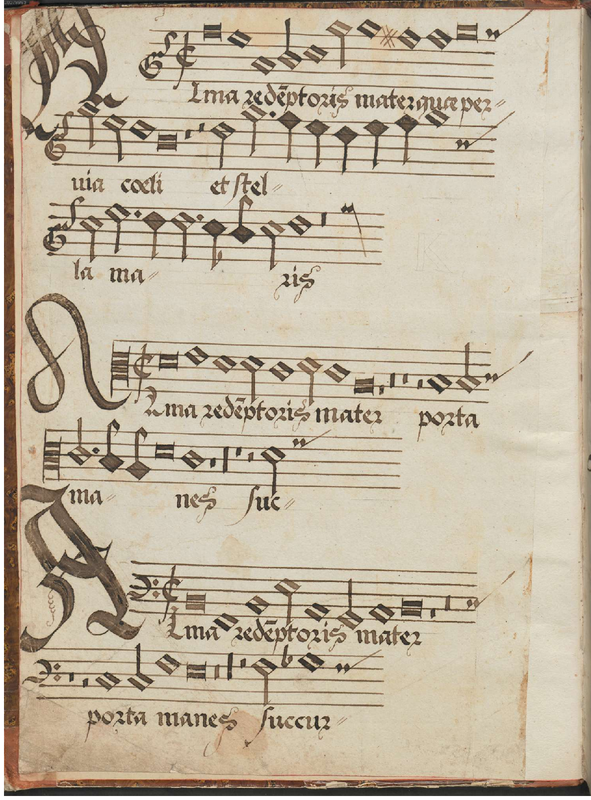 Alma redēptoris mater quae per-
uia coeli et stel-
la ma- ris
Alma redēptoris mater porta
ma- nes suc-
Alma redēptoris mater
porta manes succur-